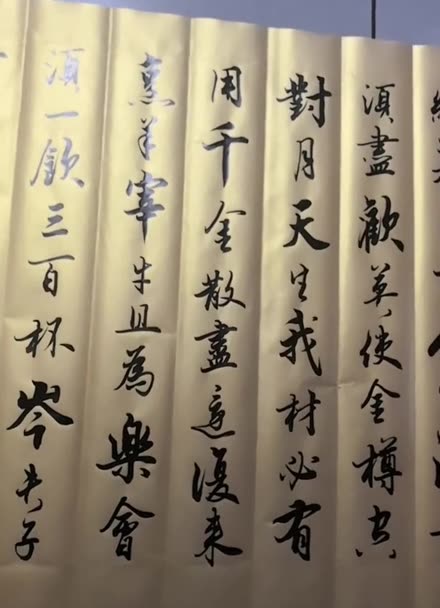 須盡歡莫使金樽空
對月天生我材必有
用千金散盡還復來
烹羊宰牛且為樂會
須一飲三百杯岑夫子